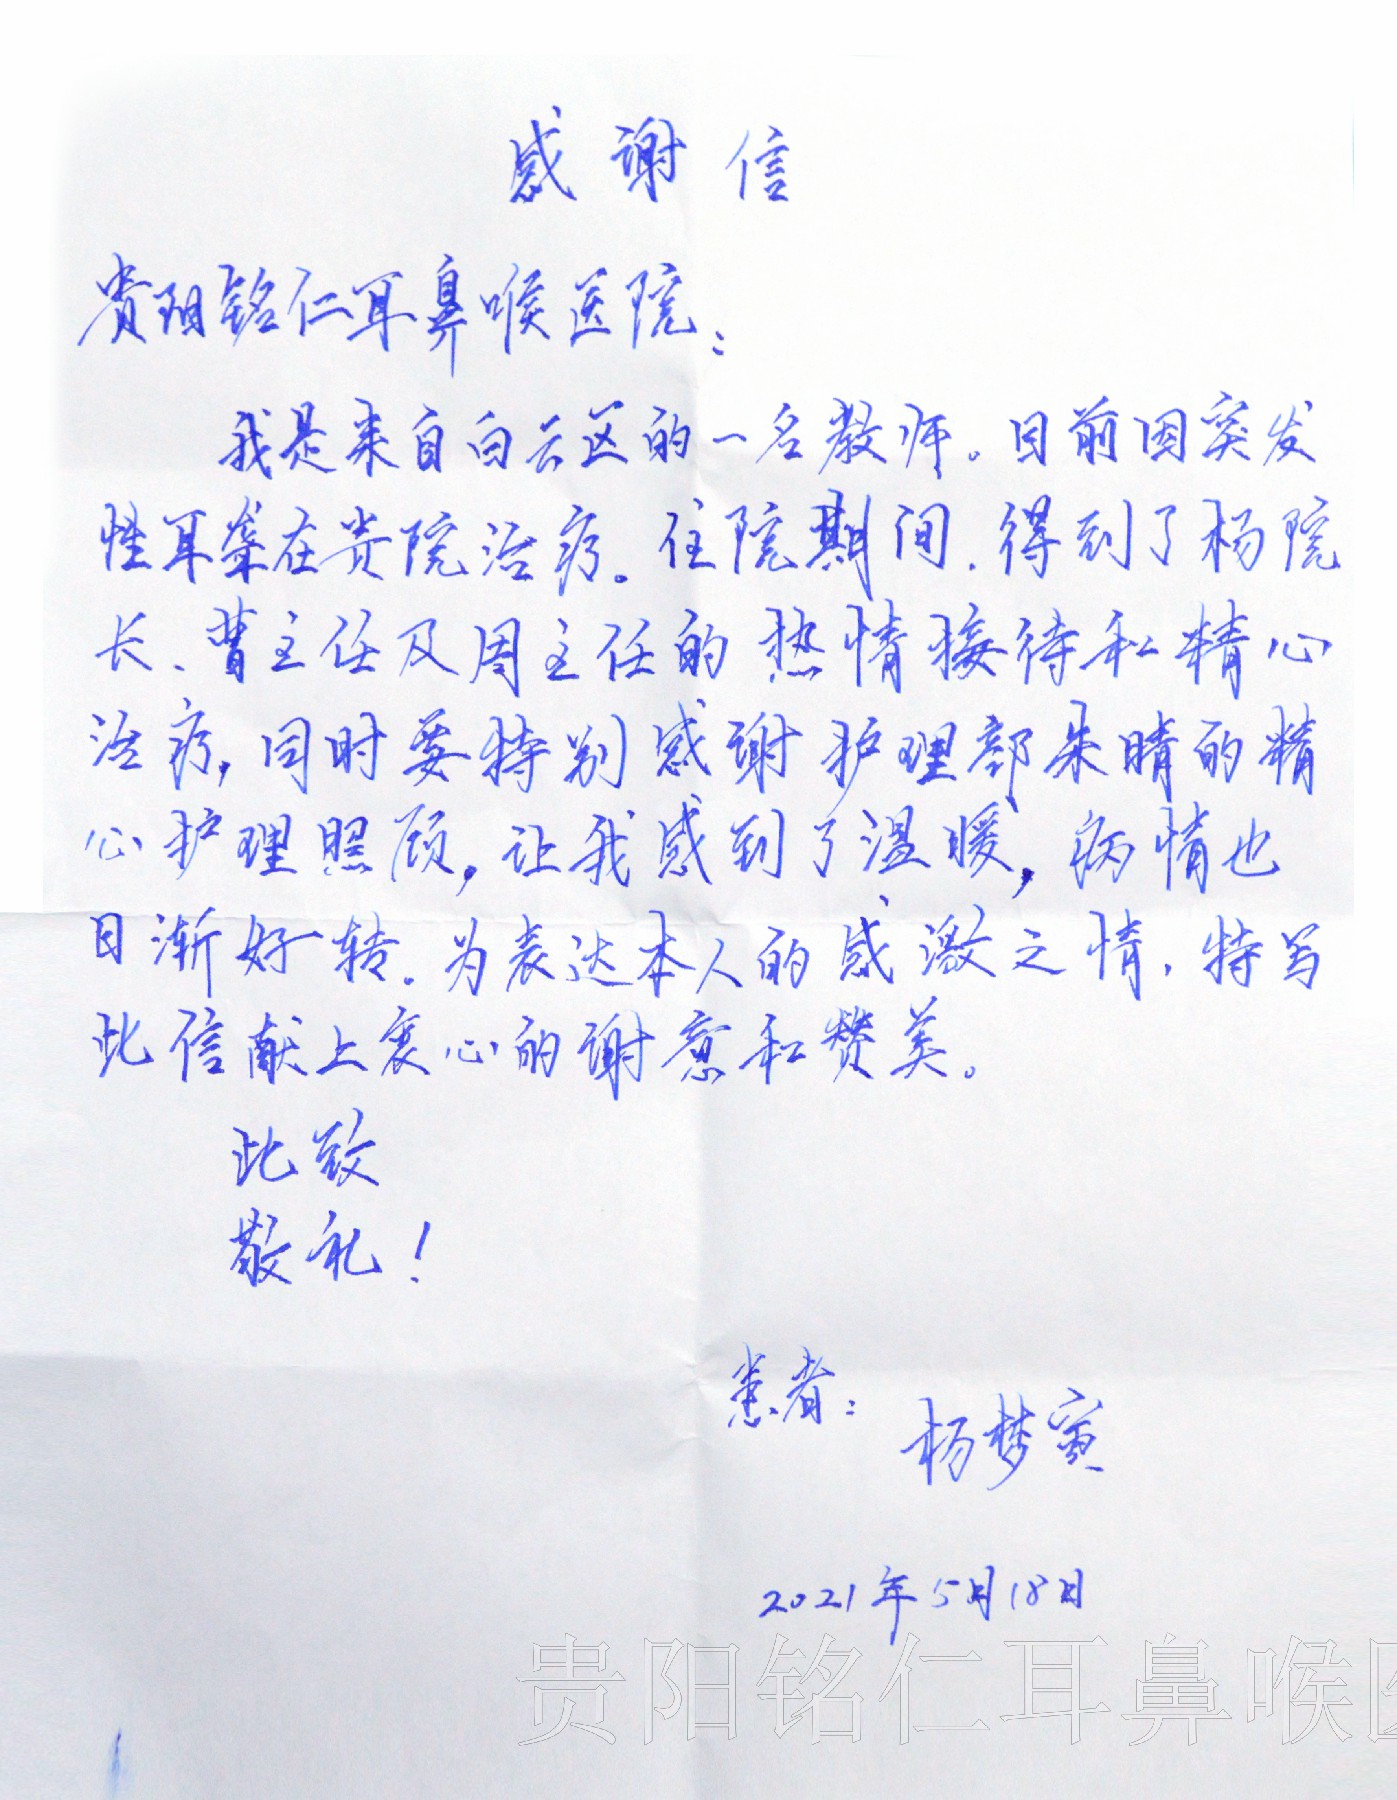 感谢信
贵阳铭仁耳鼻喉医院：
我是来自白云区的一名教师。目前因突发
性耳聋在贵院治疗。住院期间，得到了杨院
长、曹主任及周主任的热情接待和精心
治疗，同时要特别感谢护理部朱晴的精
心护理照顾，让我感到了温暖，病情也
日渐好转。为表达本人的感激之情，特写
此信献上衷心的谢意和赞美。
此致
敬礼！
患者：杨梦寅
2021年5月18日
贵阳铭仁耳鼻喉医